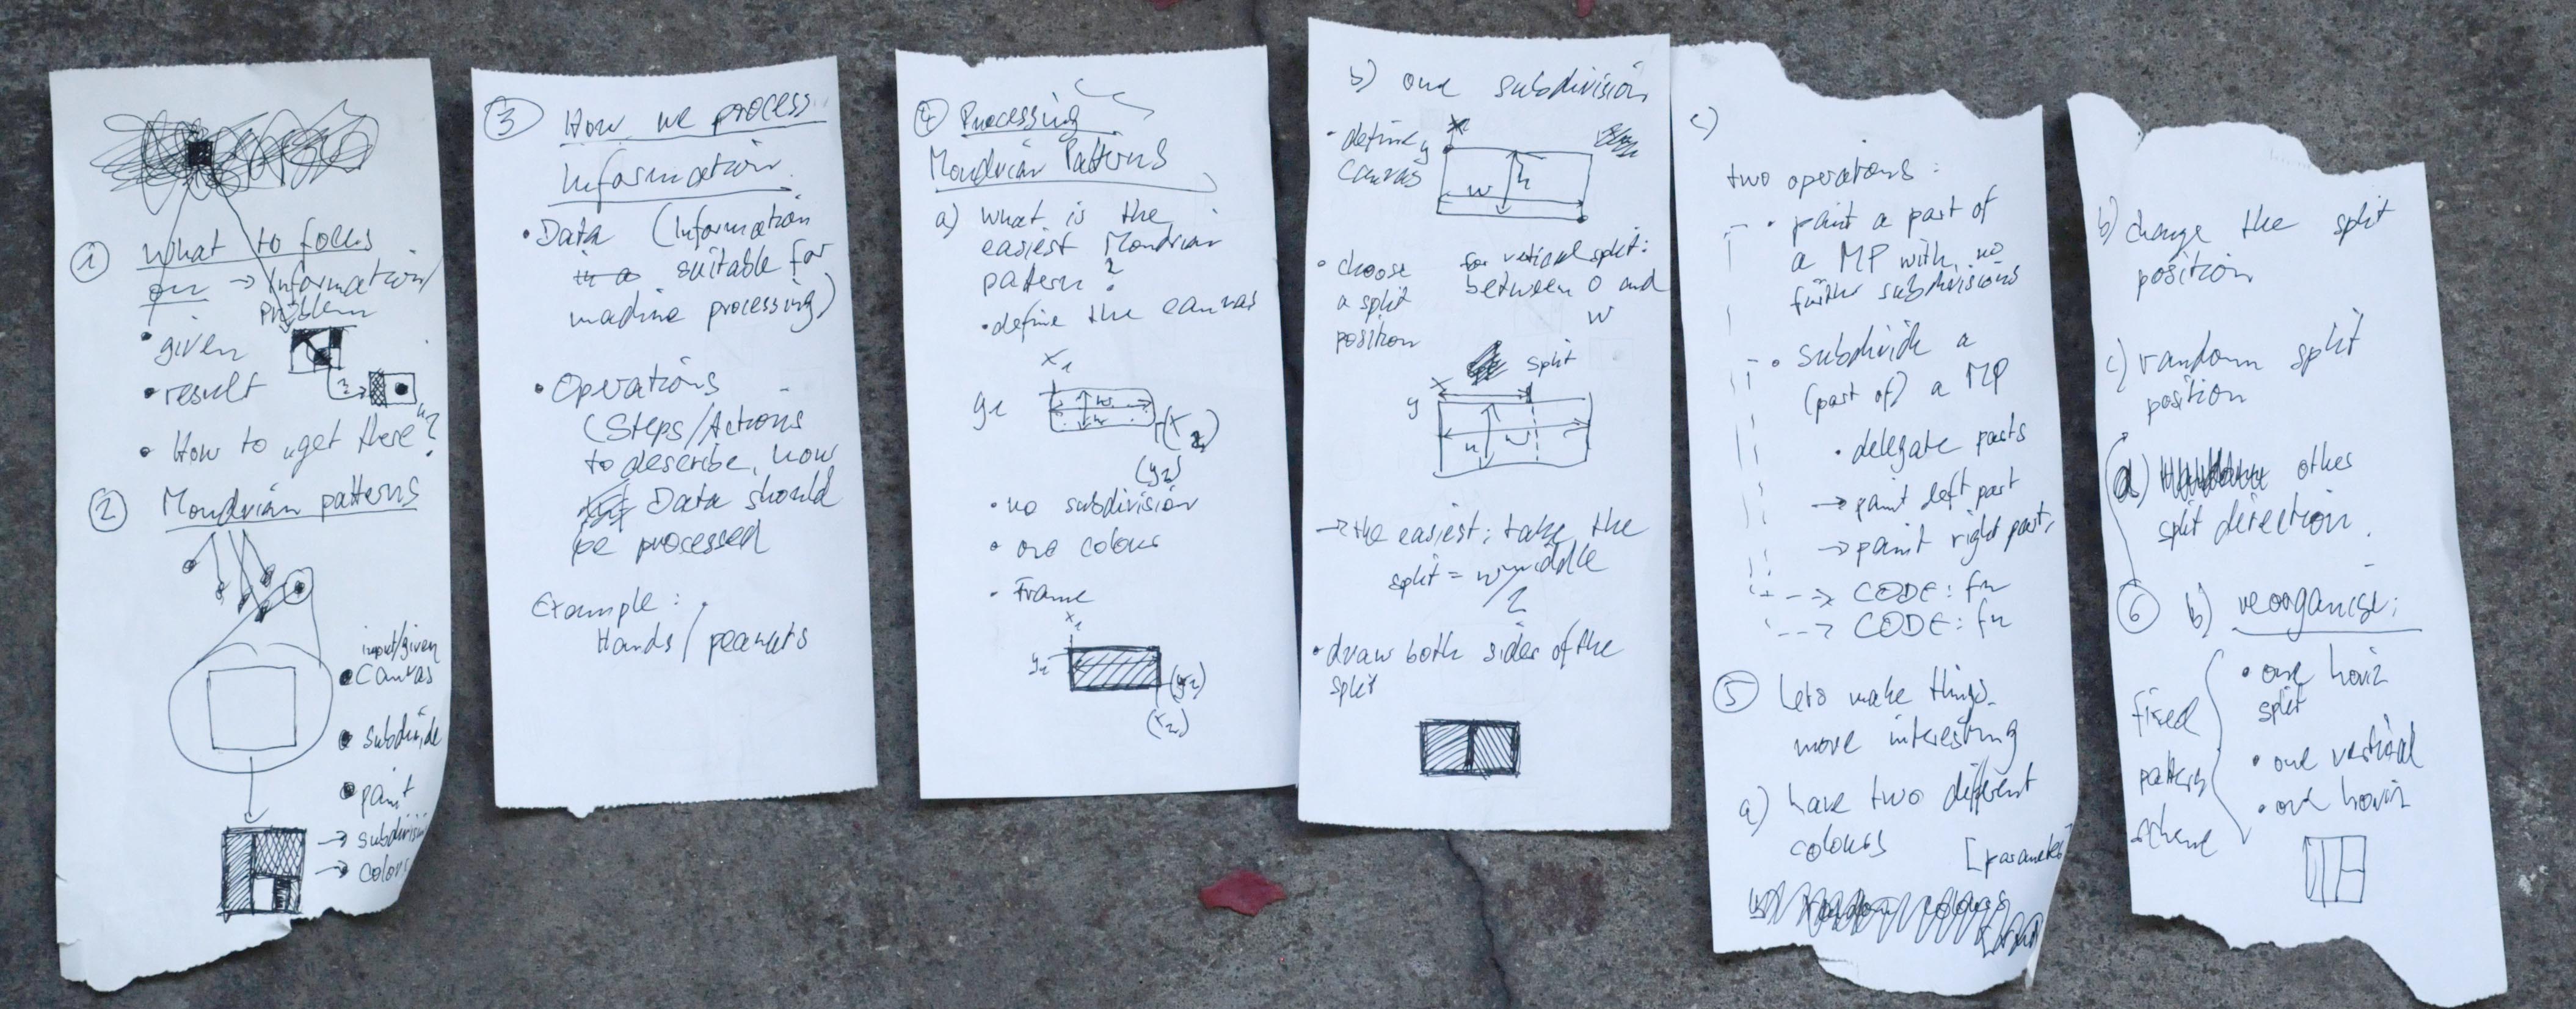 ① What to focus
on → Information/
problem
• given
• result
?
• How to "get there"?
② Mondrian patterns
input/given
• Canvas
• subdivide
• paint
→ subdivision
→ colors
③ How we process
Information
• Data (Information
in a suitable for
machine processing)
• Operations
(Steps/Actions
to describe, how
Data should
be processed
Example:
Hands / peanuts
④ Processing
Mondrian Patterns
a) what is the
easiest Mondrian
pattern?
• define the canvas
x1
y1
w
h
(x2)
(y2)
• no subdivision
• one colour
• Frame
x1
y1
(y2)
(x2)
b) one subdivision
• define
canvas
x
y
w
h
• choose
a split
position
for vertical split:
between 0 and
w
x
split
y
h
w
→ the easiest: take the
middle
split = w/2
• draw both sides of the
split
c)
two operations:
• paint a part of
a MP with no
further subdivisions
• subdivide a
(part of) a MP
• delegate parts
→ paint left part
→ paint right part
--> CODE: fn
--> CODE: fn
⑤ lets make things
more interesting
a) have two different
colours
[parameter]
b) random colours
b) change the split
position
c) random split
position
d) other
split direction.
⑥ b) reorganise:
fixed
pattern
scheme
• one horiz
split
• one vertical
• one horiz